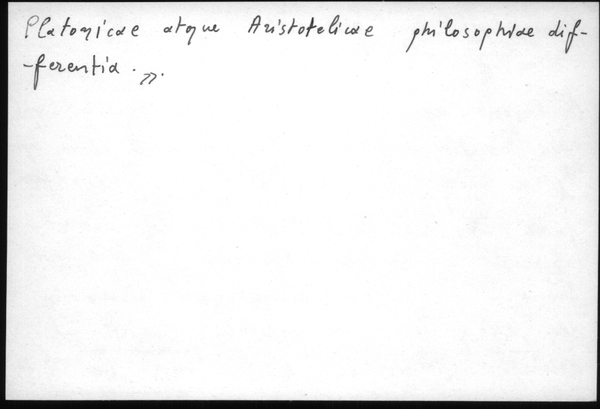 Platonicae atque Aristotelicae philosophiae dif-
-ferentia. ».